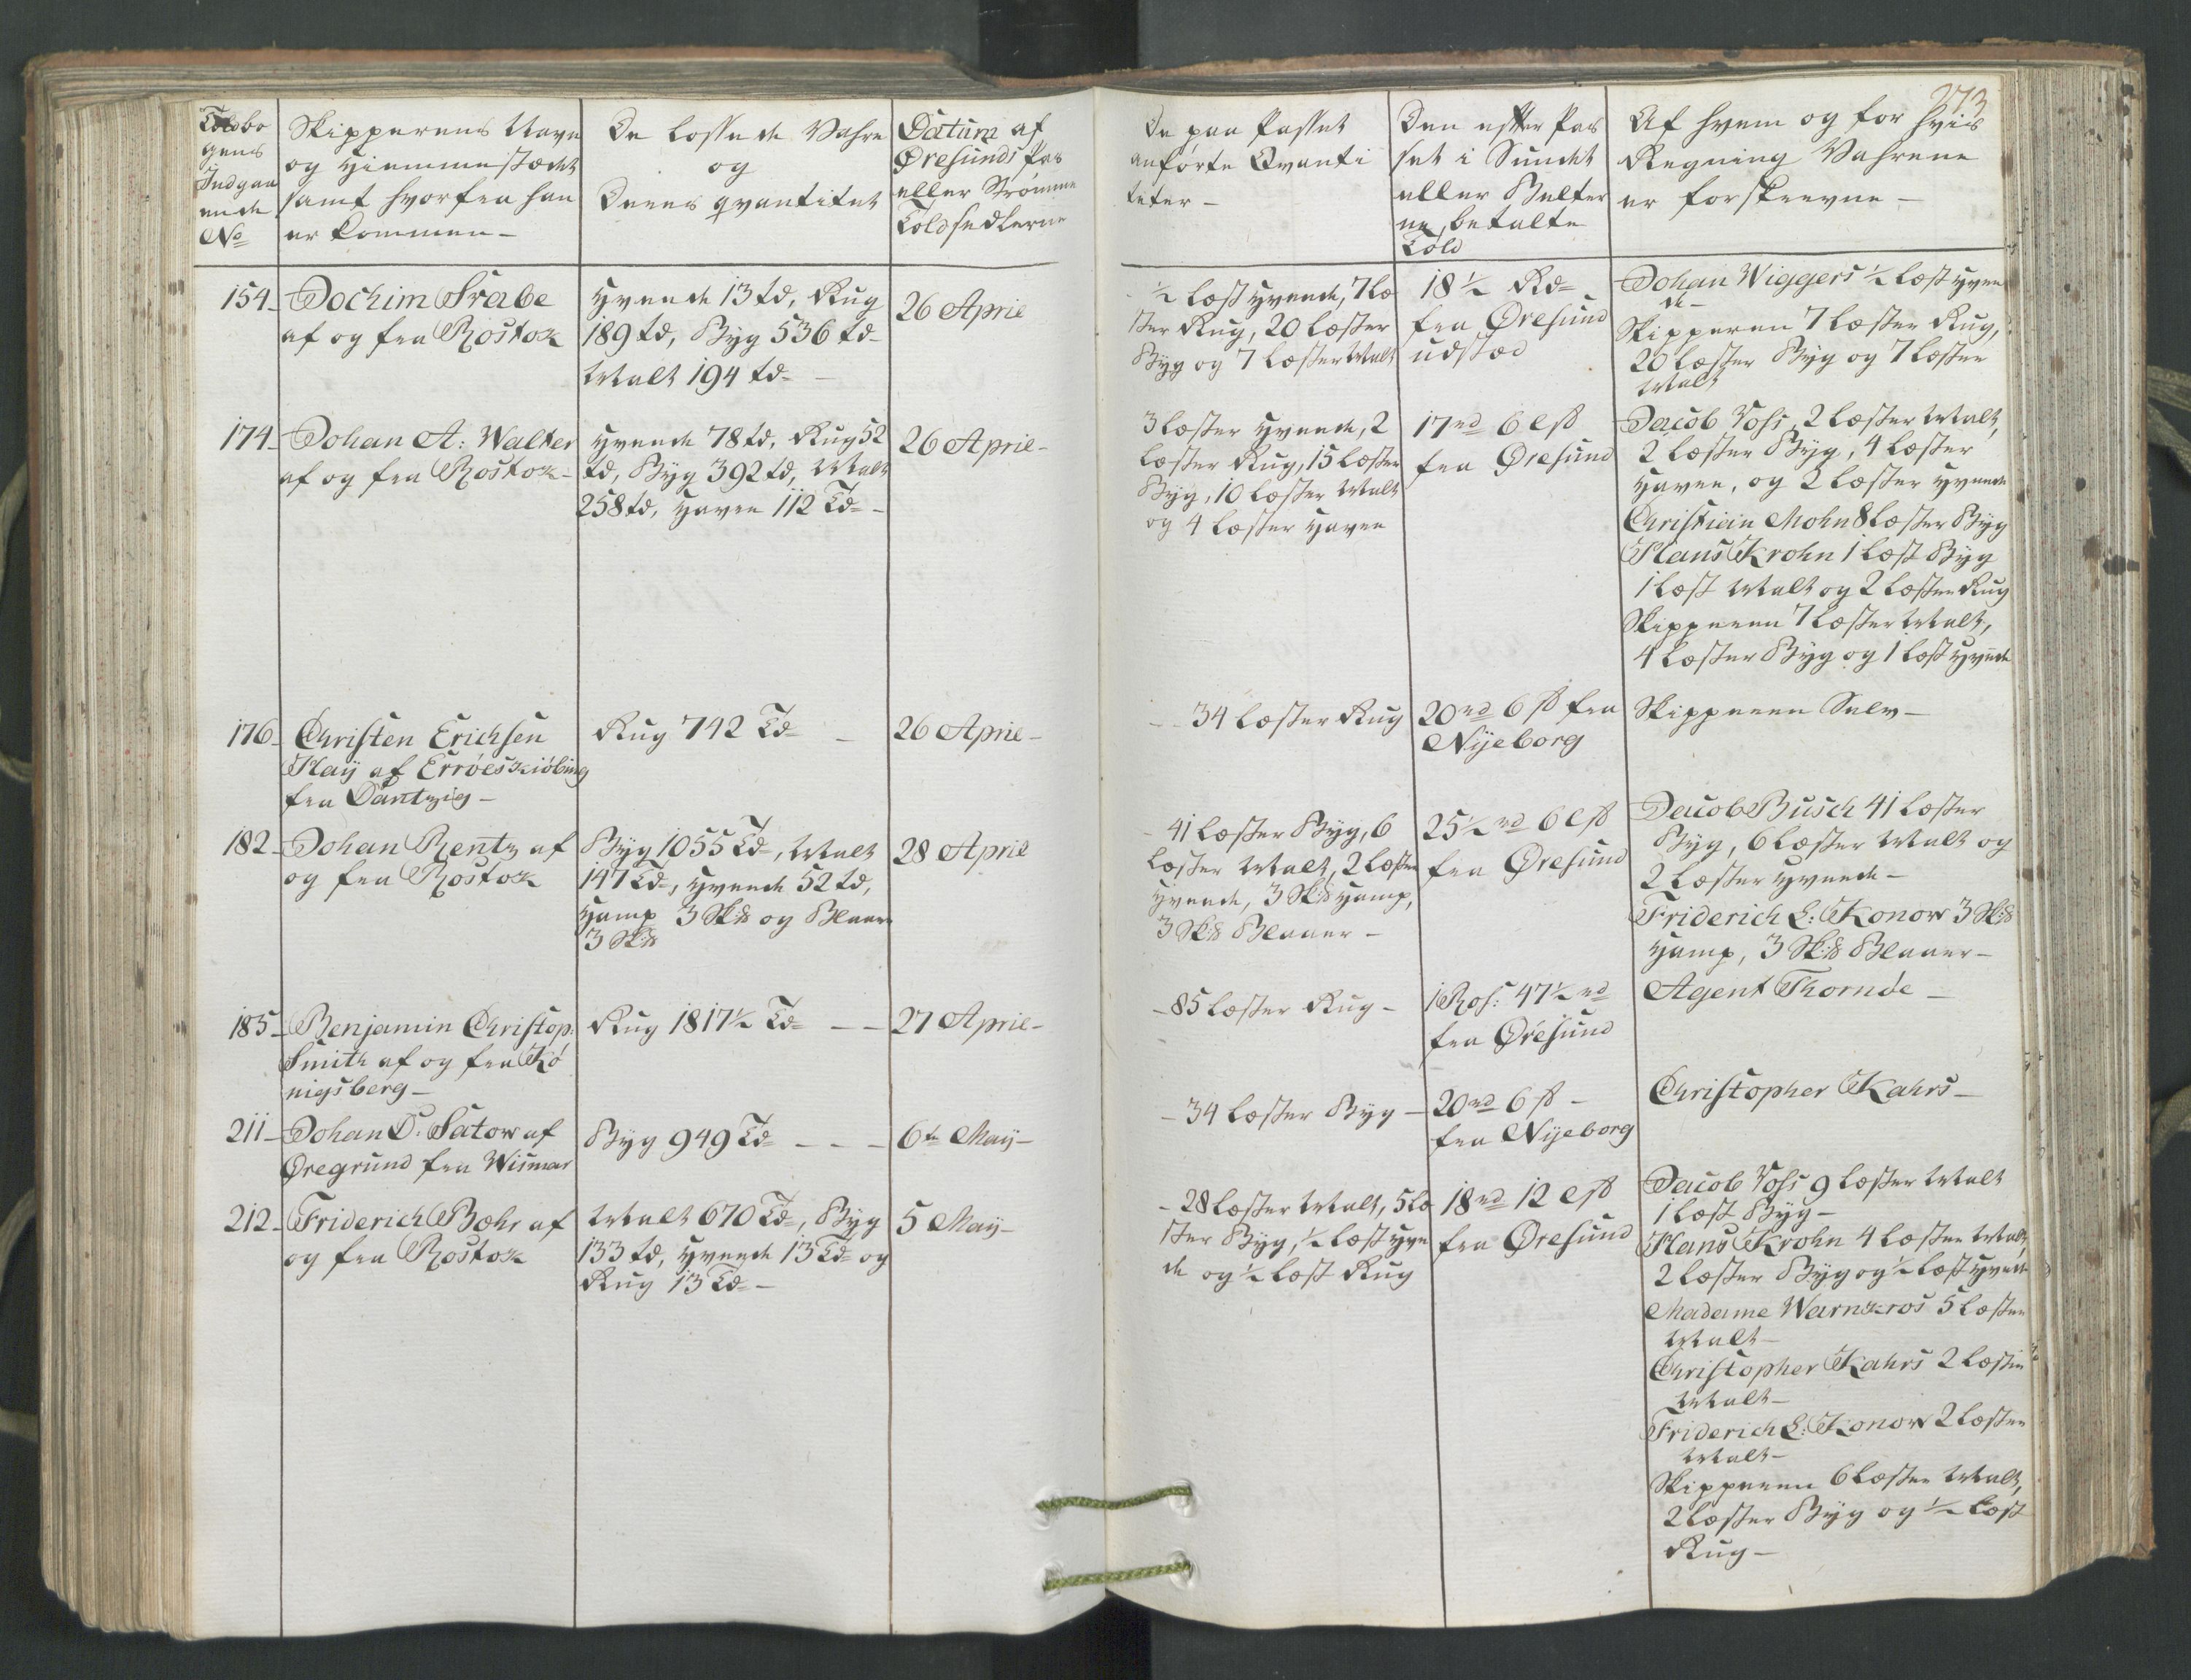 273
Toldbo
gens
Indgaa
ende
No
Skipperens Navn
og Hiemmestædet
samt hvorfra han
er kommen -
De lossede Vahre
og
Deres qvantitet
Datum af
Øresunds Pas
eller Strømme
Toldsedlerne
De paa Passet
anførte Qvanti
teter -
Den efter Pas
set i Sundet
eller Belter
ne, betalte
Told
Af hvem og for hvis
Regning Vahrene
er forskrevne -
154 - Jochim Frabe
af og fra Rostok
Hvede 13 td, Rug
189 td, Byg 536 td
Malt 194 td -
26 April
1/2 Læst Hvede, 7 Læ
ster Rug, 20 Læster
Byg og 7 Læster Malt
18 1/2 Rd
fra Øresund
udstæd
Johan Wiggers 1/2 Læst Hve
de -
Skipperen 7 Læster Rug,
20 Læster Byg og 7 Læster
Malt
174 - Johan A: Walter
af og fra Rostok -
Hvede 78 td, Rug 52
td, Byg 392 td, Malt
258 td, Havre 112 Td -
26 April -
3 Læster Hvede, 2
Læster Rug, 15 Læster
Byg, 10 Læster Malt
og 4 Læster Havre
17 rd 6 lß
fra Øresund
Jacob Vohs, 2 Læster Malt,
2 Læster Byg, 4 Læster
Havre, og 2 Læster Hvede
Christian Mohn 8 Læster Byg
Hans Krohn 1 Læst Byg
1 Læst Malt og 2 Læster Rug
Skipperen 7 Læster Malt,
4 Læster Byg og 1 Læst Hvede
176 - Christen Erichsen
Haÿ af Erröeskiöbing
fra Dantzig -
Rug 742 Td -
26 April -
- 34 Læster Rug
20 rd 6 ß fra
Nÿeborg
Skipperen Selv -
182 - Johan Rentz af
og fra Rostok
Byg 1055 Td, Malt
147 Td, Hvede 52 td,
Hamp 3 Sk℔ og Blaar
3 Sk℔
28 April
- 41 Læster Byg, 6
Læster Malt, 2 Læster
Hvede, 3 Sk℔ Hamp,
3 Sk℔ Blaaer -
25 1/2 rd 6 lß
fra Øresund
Jacob Busch 41 Læster
Byg, 6 Læster Malt og
2 Læster Hvede -
Friderich L: Konow 3 Sk℔
Hamp, 3 Sk℔ Blaaer -
185 - Benjamin Christop:
Smith af og fra Kö
nigsberg -
Rug 1817 1/2 Td - -
27 April -
- 85 Læster Rug -
1 Ros: 47 1/2 rd
fra Øresund
Agent Thornde -
211 - Johan D: Satow af
Øregrund fra Wismar
Byg 949 Td - - -
6te Maÿ -
- 34 Læster Byg -
20 rd 6 ß -
fra Nÿeborg
Christopher Kahrs -
212 - Friderich Bohr af
og fra Rostok
Malt 670 Td, Byg
133 td, Hvede 13 Td og
Rug 13 Td -
5 Maÿ -
- 28 Læster Malt, 5 Læ
ster Byg, 1/2 Læst Hve
de og 1/2 Læst Rug
18 rd 12 lß
fra Øresund
Jacob Vohs 9 Læster Malt
1 Læst Byg -
Hans Krohn 4 Læster Malt,
2 Læster Byg og 1/2 Læst Hvede
Madame Warnkros 5 Læster
Malt -
Christopher Kahrs 2 Læster
Malt -
Friderich L: Konow 2 Læster
Malt -
Skipperen 6 Læster Malt,
2 Læster Byg og 1/2 Læst
Rug -